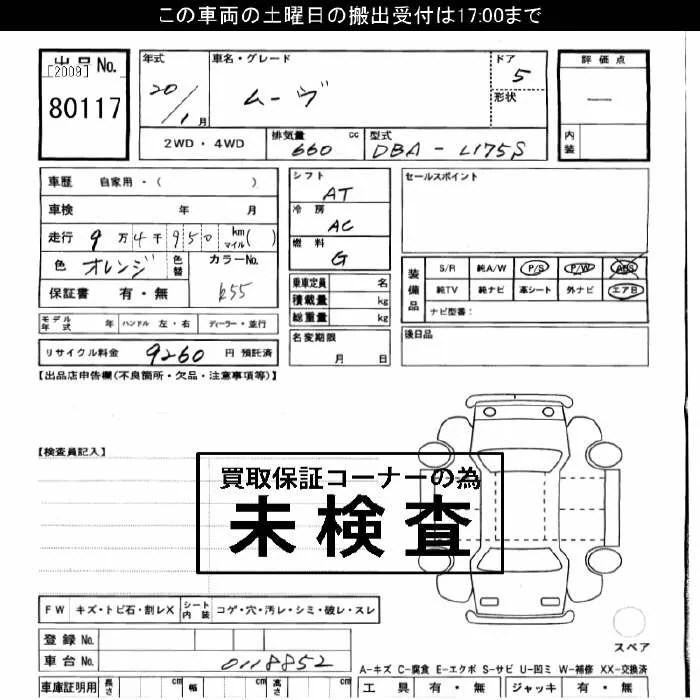 この車両の土曜日の搬出受付は17:00まで
出品No.
[2009]
80117
年式
20/1月
車名・グレード
ムーヴ
ドア
5
形状
評価点
—
内装
2WD・4WD
排気量 cc
660
型式
DBA-L175S
車歴 自家用・( )
車検 年 月
走行 9万4千950 km マイル ( )
色 オレンジ 色替 カラーNo.
保証書 有・無 R55
シフト
AT
冷房
AC
燃料
G
乗車定員 名
積載量 kg
総重量 kg
セールスポイント
装備品
S/R 純A/W P/S P/W ABS
純TV 純ナビ 革シート 外ナビ エアB
ナビ型番:
モデル年式 年 ハンドル 左・右 ディーラー・並行
リサイクル料金 9260 円 預託済
名変期限
月 日
後日品
【出品店申告欄(不良箇所・欠品・注意事項等)】
【検査員記入】
買取保証コーナーの為
未検査
FW キズ・トビ石・割レX シート内装 コゲ・穴・汚レ・シミ・破レ・スレ
スペア
登録No.
車台No. 0118852
A-キズ C-腐食 E-エクボ S-サビ U-凹ミ W-補修 XX-交換済
車庫証明用 長さ cm 幅 cm 高さ cm 工具 有・無 ジャッキ 有・無